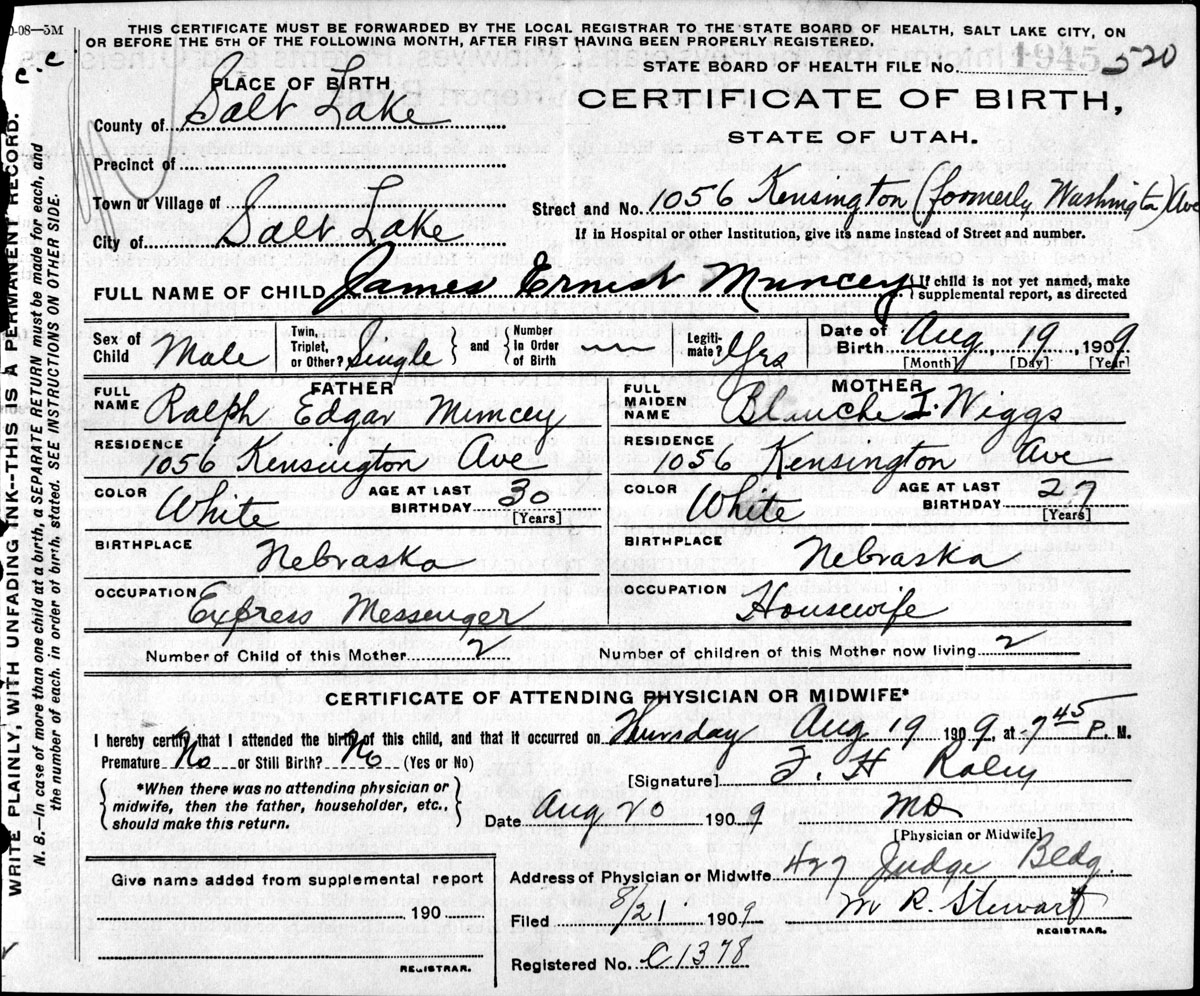 0-08—5M
THIS CERTIFICATE MUST BE FORWARDED BY THE LOCAL REGISTRAR TO THE STATE BOARD OF HEALTH, SALT LAKE CITY, ON
OR BEFORE THE 5TH OF THE FOLLOWING MONTH, AFTER FIRST HAVING BEEN PROPERLY REGISTERED.
STATE BOARD OF HEALTH FILE No. 1945 520
PLACE OF BIRTH
CERTIFICATE OF BIRTH,
STATE OF UTAH.
County of Salt Lake
Precinct of
Town or Village of
Street and No. 1056 Kensington (formerly Washington) Ave
City of Salt Lake
If in Hospital or other Institution, give its name instead of Street and number.
FULL NAME OF CHILD James Ernest Muncey { If child is not yet named, make
supplemental report, as directed
Sex of Child Male
Twin, Triplet, or Other? Single } and { Number In Order of Birth —
Legitimate? Yes
Date of Birth Aug 19, 1909
[Month] [Day] [Year]
FATHER
FULL NAME Ralph Edgar Muncey
RESIDENCE 1056 Kensington Ave
COLOR White AGE AT LAST BIRTHDAY 30 [Years]
BIRTHPLACE Nebraska
OCCUPATION Express Messenger
MOTHER
FULL MAIDEN NAME Blanche I. Wiggs
RESIDENCE 1056 Kensington Ave
COLOR White AGE AT LAST BIRTHDAY 27 [Years]
BIRTHPLACE Nebraska
OCCUPATION Housewife
Number of Child of this Mother 2 Number of children of this Mother now living 2
CERTIFICATE OF ATTENDING PHYSICIAN OR MIDWIFE*
I hereby certify that I attended the birth of this child, and that it occurred on Thursday Aug 19 1909, at 7 45 P. M.
Premature No or Still Birth? No (Yes or No)
[Signature] F. H Raley
{ *When there was no attending physician or
midwife, then the father, householder, etc.,
should make this return. }
Date Aug 20 1909 MD
[Physician or Midwife]
Address of Physician or Midwife 427 Judge Bldg.
Give name added from supplemental report
190
REGISTRAR.
Filed 8/21 1909 M R. Stewart
REGISTRAR.
Registered No. C1378
P.C
WRITE PLAINLY, WITH UNFADING INK--THIS IS A PERMANENT RECORD.
N. B.—In case of more than one child at a birth, a SEPARATE RETURN must be made for each, and
the number of each, in order of birth, stated. SEE INSTRUCTIONS ON OTHER SIDE.